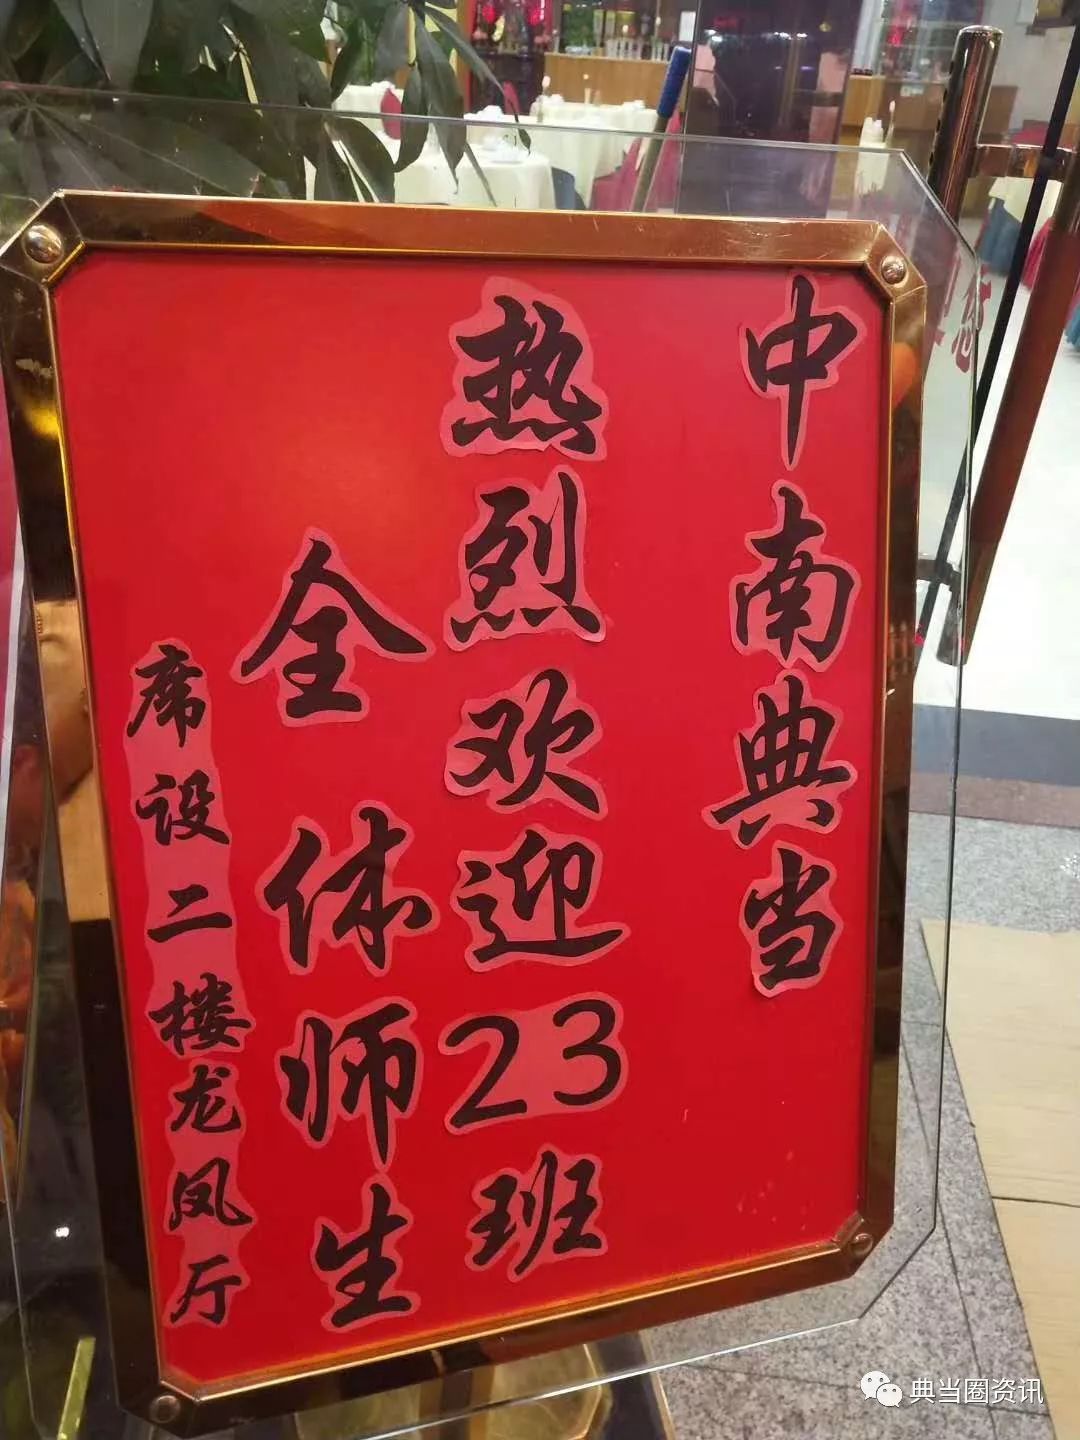 中南典当
热烈欢迎23班
全体师生
席设二楼龙凤厅
典当圈资讯